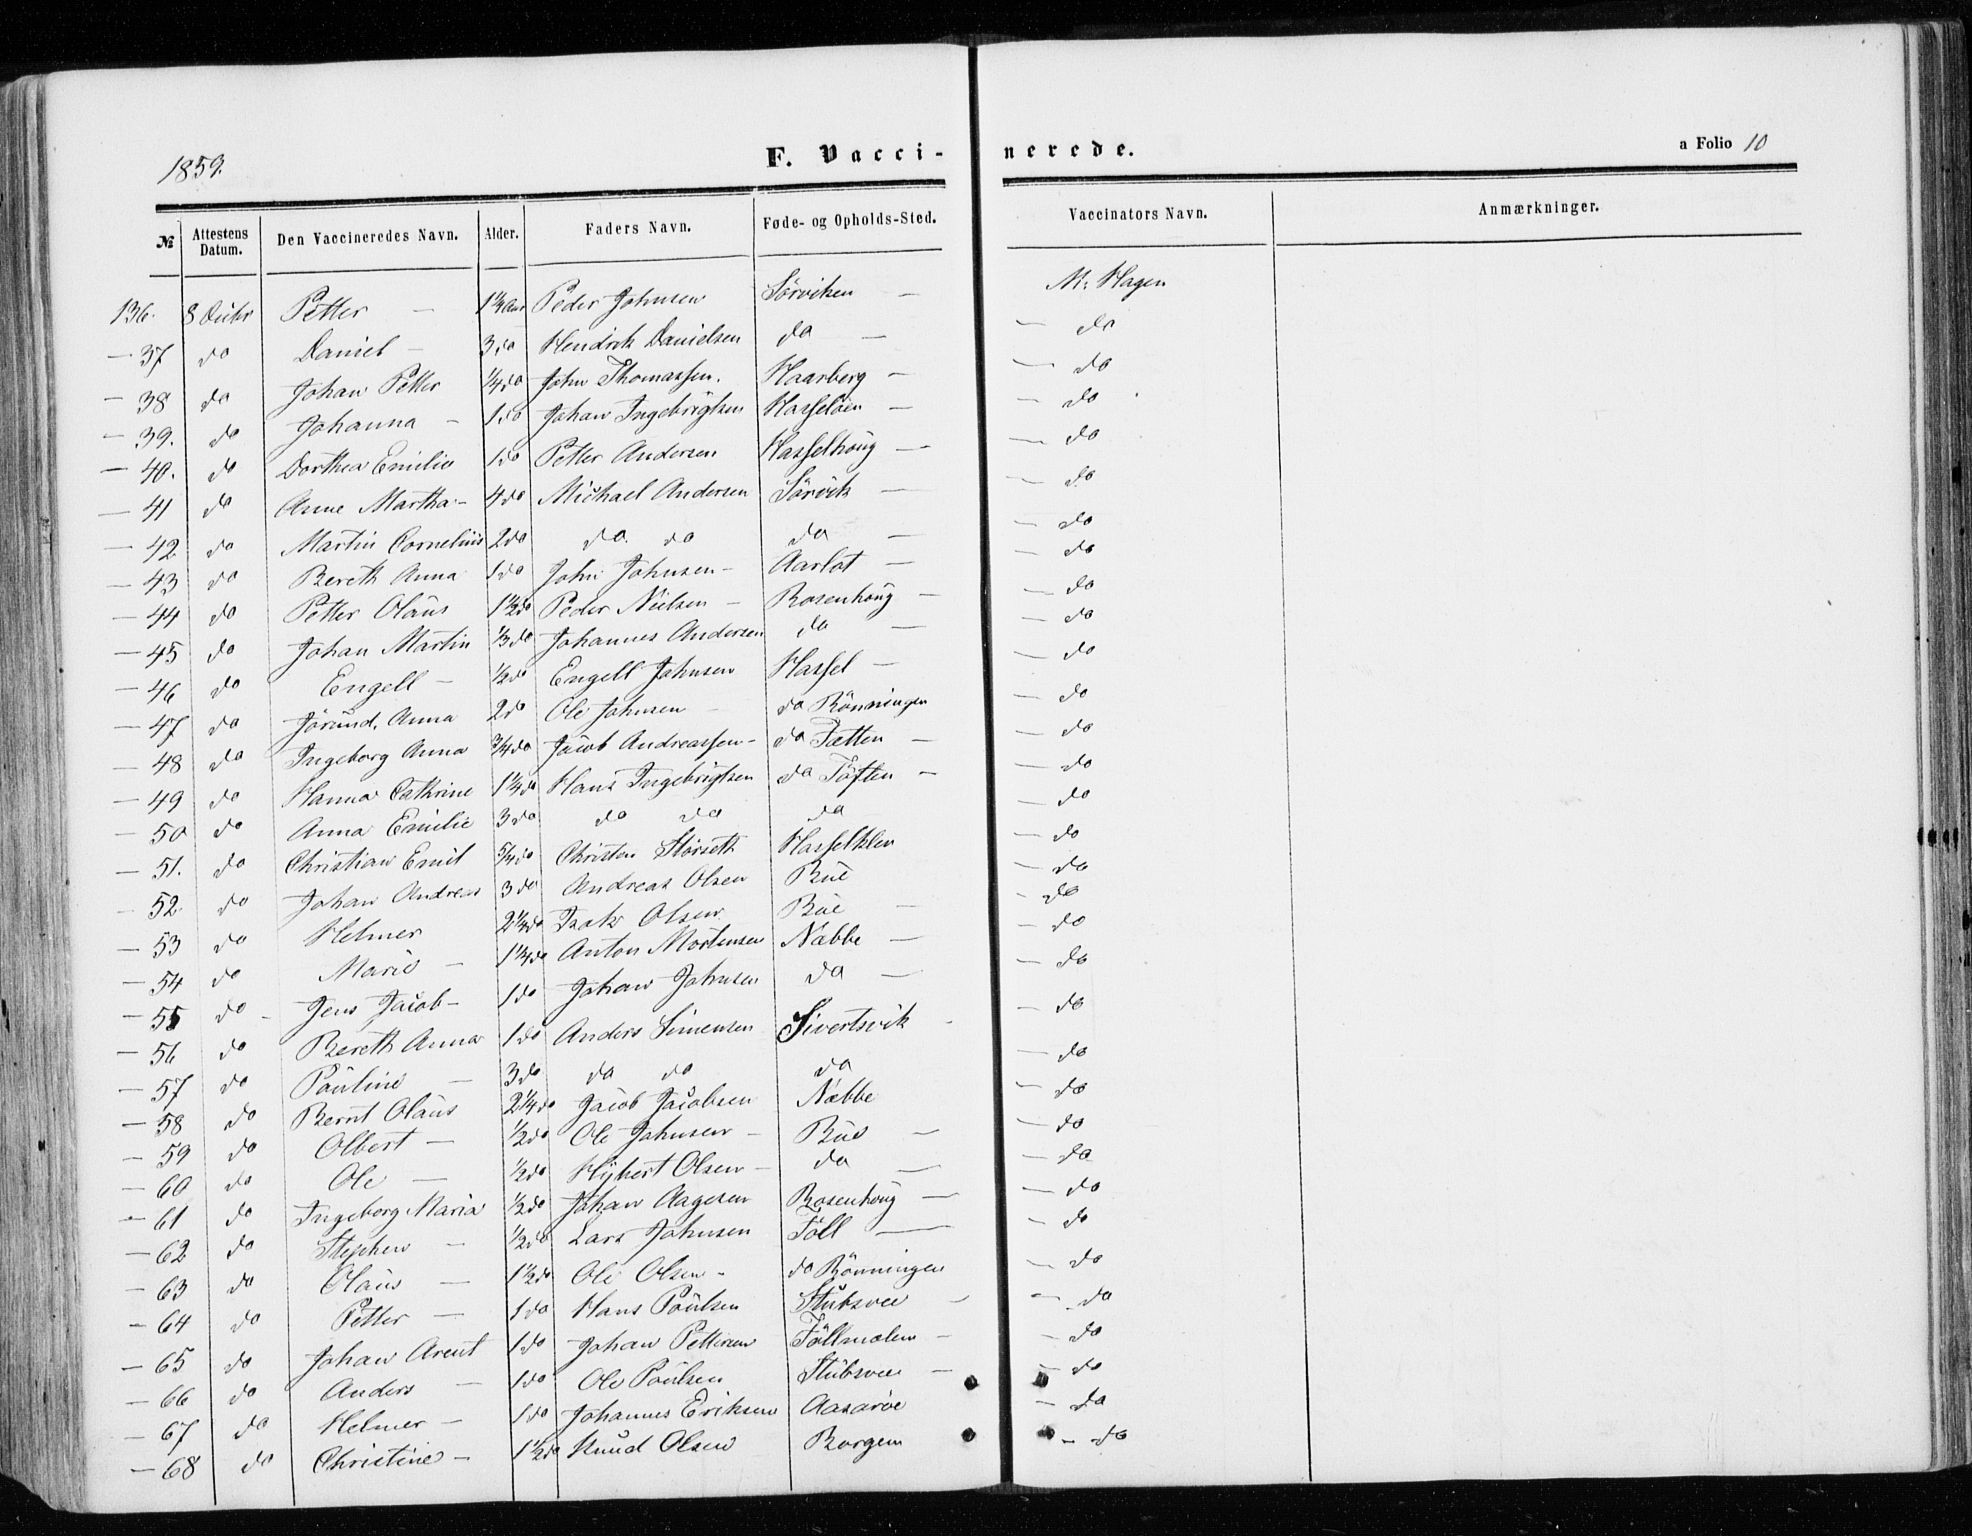 1859.
F. Vacci-nerede.
a Folio 10
№ Attestens Datum. Den Vaccineredes Navn. Alder. Faders Navn. Føde- og Opholds-Sted. Vaccinators Navn. Anmærkninger.
136. 8 Petter - 1 1/4 Aar Peder Johnsen Sörviken - M: Hagen
- 37 do Daniel - 3 do Hendrik Danielsen do - - do
- 38 do Johan Petter 1/4 do John Thomassen. Haarberg - - do
- 39. do Johanna - 1 do Johan Ingebrigtsen Hasseløen - - do
- 40. do Dorthea Emilie 1 do Petter Andersen Hasselhöug - - do
- 41 do Anne Martha - 4 do Michael Andersen Sörvik - - do
- 42 do Martin Cornelius 2 do do do do - - do
- 43 do Bereth Anna 1 do John Johnsen - Aarlot - - do
- 44 do Petter Olaus 1 1/2 do Peder Nielsen - Rosenhöug - - do
- 45 do Johan Martin 1/3 do Johannes Andersen do - - do
- 46 do Engell - 1/2 do Engell Johnsen Hassel - - do
- 47 do Jörund. Anna 2 do Ole Johnsen - do Rönningen - do
- 48 do Ingeborg Anna 3/4 do Jacob Andreassen - do Tætten - - do
- 49 do Hanna Cathrine 1 1/4 do Hans Ingebrigtsen do Töften - - do
- 50 do Anna Emilie 3 do do do do - do
- 51. do Christian Emil 5/4 do Christen Störseth - do
- 52 do Johan Andreas 3 do Andreas Olsen Bue - do
- 53 do Helmer 2 1/4 do Isak Olsen Bue - - do
- 54 do Marie - 1 1/4 do Anton Mortensen Nabbe - - do
- 55 do - Jens Jacob - 1 do Johan Johnsen do - - do
- 56 do Bereth Anna 1 do Anders Simensen Sivertsvik - - do
- 57 do Pauline - 3 do do do do - do
- 58 do Bernt Olaus 2 1/4 do Jacob Jacobsen Nabbe - do
- 59 do Olbert - 1/2 do Ole Johnsen - Bue - - do
- 60 do Ole - 1/2 do Olsen - do - - do
- 61 do Ingeborg Maria 1/2 do Johan Aagesen Rosenhöug - - do
- 62 do Stephen - 1/2 do Lars Johnsen Föll - - do
- 63 do Olaus - 1 1/2 do Ole Olsen - do Rönningen - do
- 64 do Petter - 1 do Hans Paulsen Stubsvee - - do
- 65 do Johan Arent 1 do Johan Pettersen Föllmoelen - - do
- 66 do Anders - 1 do Ole Paulsen Stubsvee - - do
- 67 do Helmer - 1 do Johannes Eriksen Aasaröe - do
- 68 do Christine - 1 1/2 do Knud Olsen Borgen - do